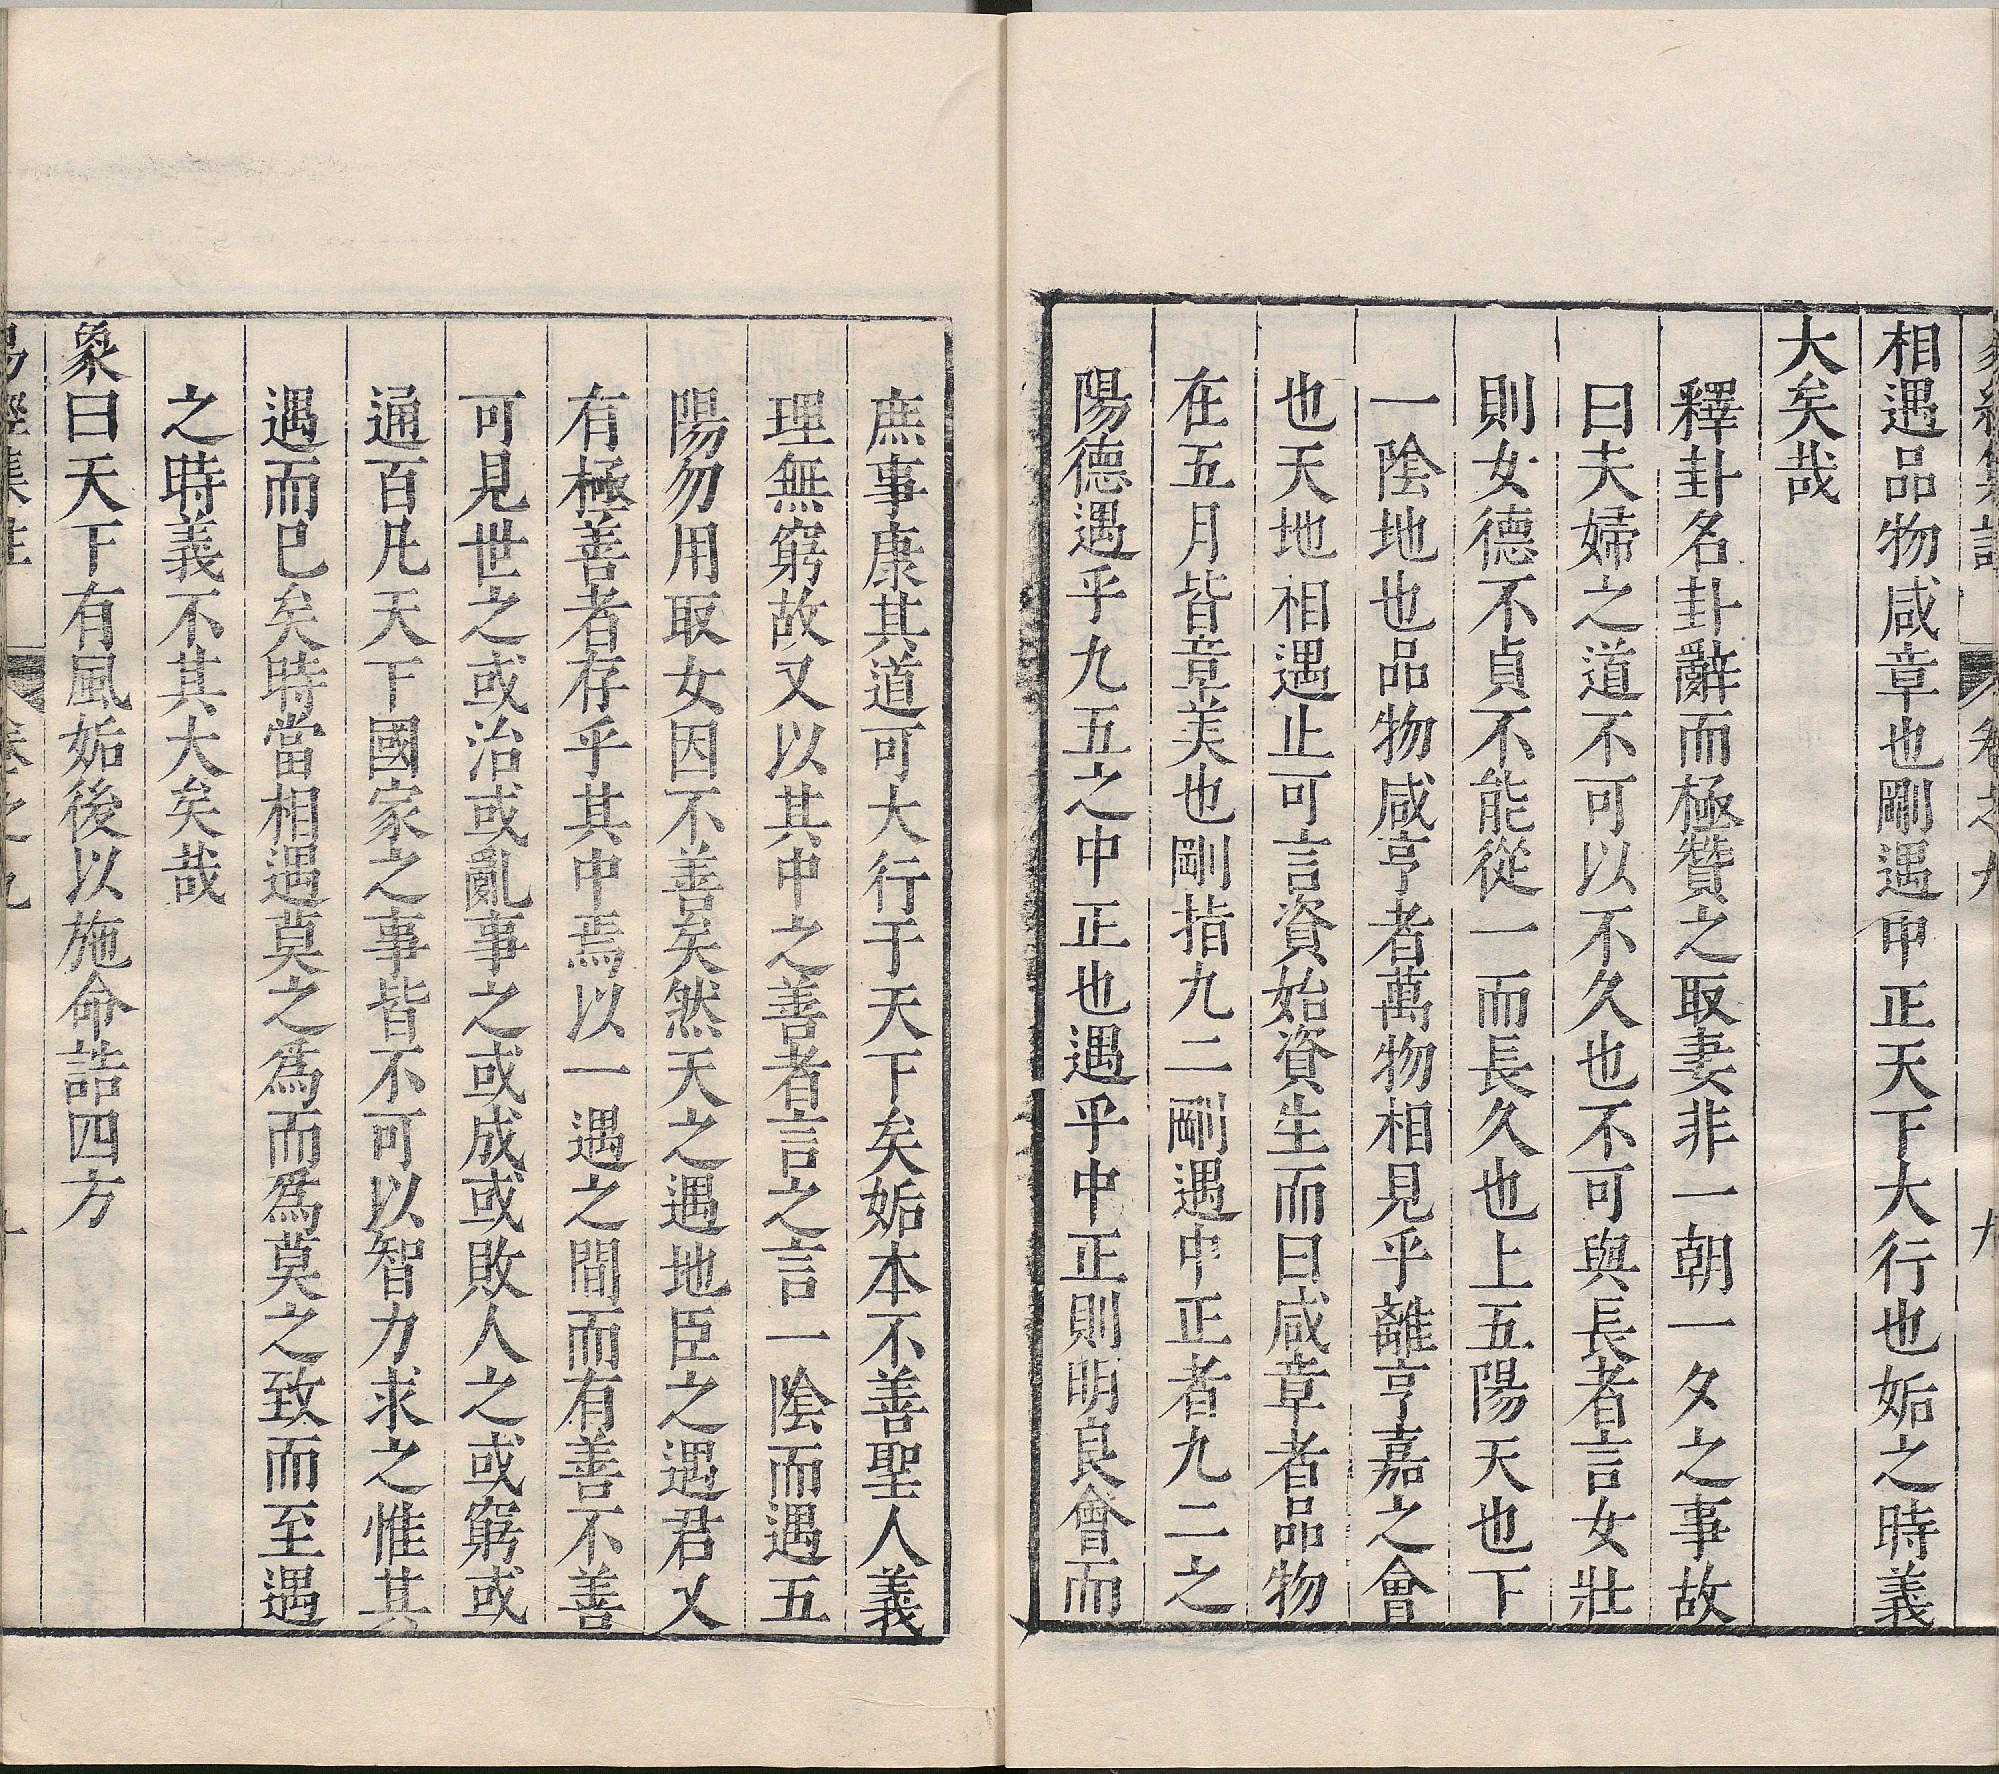 易經集註 卷之九 九
相遇品物咸章也剛遇中正天下大行也姤之時義
大矣哉
釋卦名卦辭而極贊之取妻非一朝一夕之事故
曰夫婦之道不可以不久也不可與長者言女壯
則女德不貞不能從一而長久也上五陽天也下
一陰地也品物咸亨者萬物相見乎離亨嘉之會
也天地相遇止可言資始資生而曰咸章者品物
在五月皆章美也剛指九二剛遇中正者九二之
陽德遇乎九五之中正也遇乎中正則明良會而
庶事康其道可大行于天下矣姤本不善聖人義
理無窮故又以其中之善者言之言一陰而遇五
陽勿用取女因不善矣然天之遇地臣之遇君又
有極善者存乎其中焉以一遇之間而有善不善
可見世之或治或亂事之或成或敗人之或窮或
通百凡天下國家之事皆不可以智力求之惟其
遇而巳矣時當相遇莫之爲而爲莫之致而至遇
之時義不其大矣哉
象曰天下有風姤後以施命誥四方
易經集註 卷之九